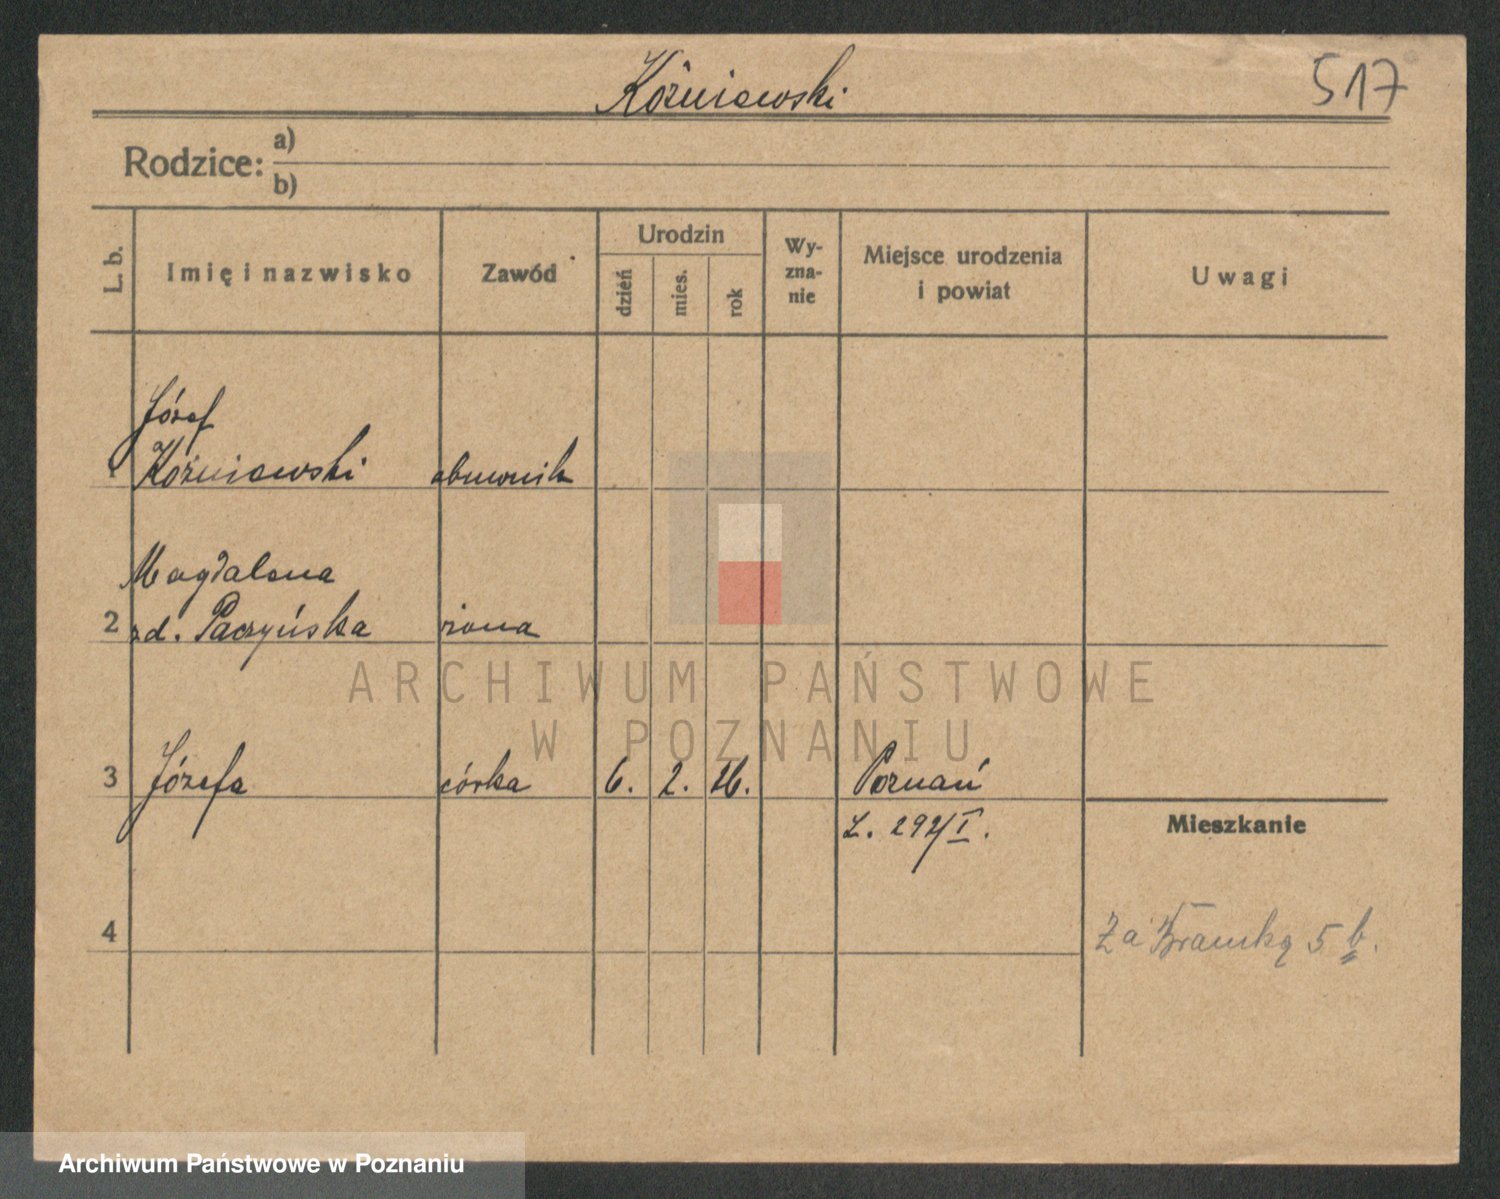 Koźniewski
517
Rodzice:
a)
b)
L. b.
Imię i nazwisko
Zawód
Urodzin
dzień
mies.
rok
Wy-
zna-
nie
Miejsce urodzenia
i powiat
Uwagi
Józef
1 Koźniewski
2
Magdalena
zd. Paczyńska żona
3 Józefa córka 6. 2. 26. Poznań
Mieszkanie
4
Za Bramką 5 b.
ARCHIWUM PAŃSTWOWE
W POZNANIU
Archiwum Państwowe w Poznaniu